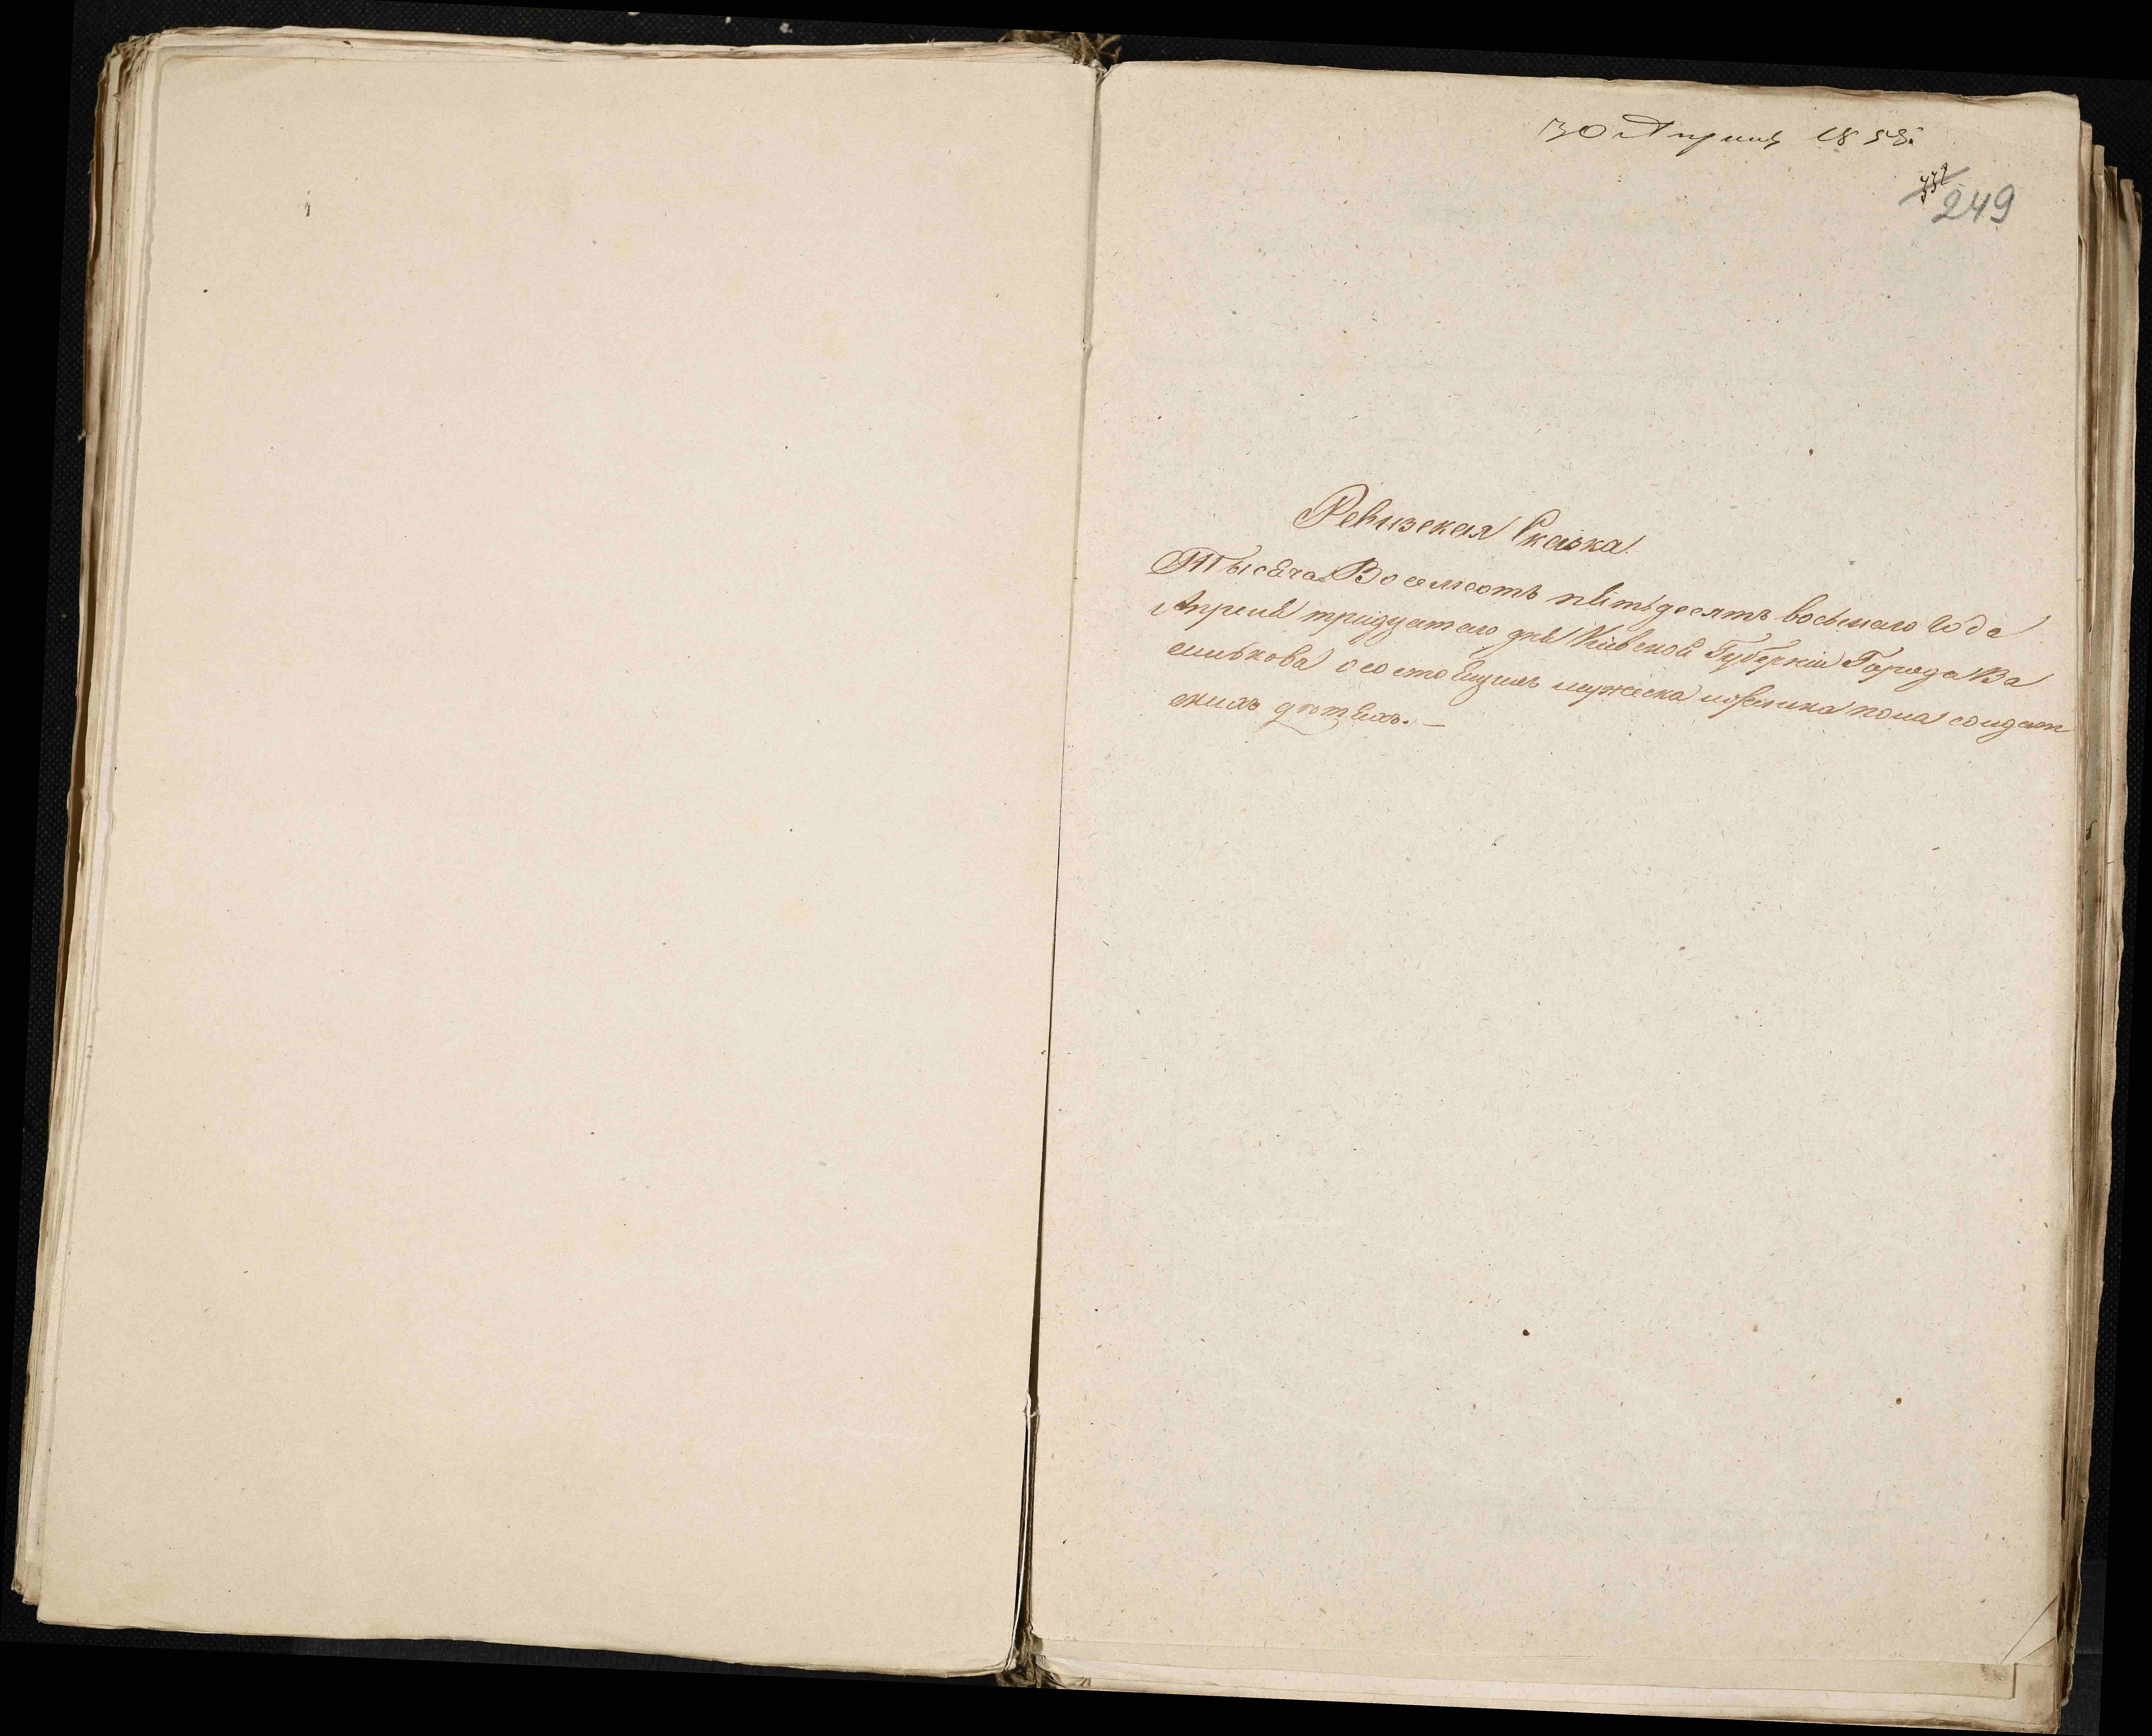 30 Апреля 1858.
249
Ревизская Скаска.
Тысеча Восемсотъ пѣтьдесятъ восьмаго года
Апреля тридцатаго дня Кіевской Губерніи Города Ва
силькова осостоѣщихъ мужеска иженска пола солдат
скихъ дѣтѣхъ. —